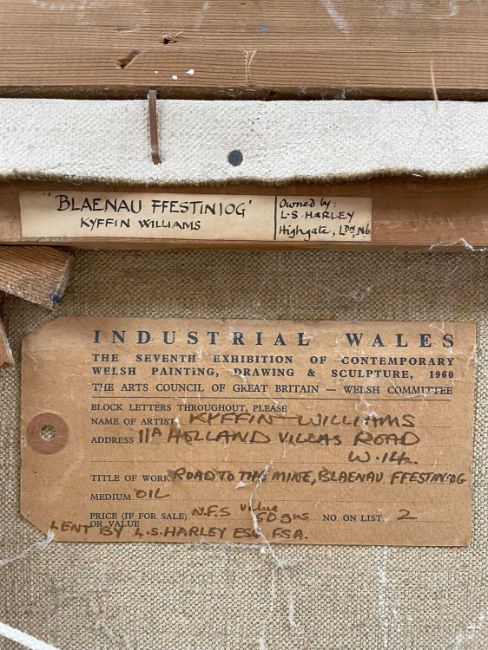 "BLAENAU FFESTINIOG'
KYFFIN WILLIAMS
Owned by:
L-S. HARLEY
Highgate, LDN, N6
INDUSTRIAL WALES
THE SEVENTH EXHIBITION OF CONTEMPORARY
WELSH PAINTING, DRAWING & SCULPTURE, 1960
THE ARTS COUNCIL OF GREAT BRITAIN — WELSH COMMITTEE
BLOCK LETTERS THROUGHOUT, PLEASE
NAME OF ARTIST KYFFIN WILLIAMS
ADDRESS 11A HOLLAND VILLAS ROAD
W.14.
TITLE OF WORK ROAD TO THE MINE, BLAENAU FFESTINIOG
MEDIUM OIL
PRICE (IF FOR SALE) N.F.S value gns NO. ON LIST 2
OR VALUE
LENT BY L.S. HARLEY ESQ FSA.